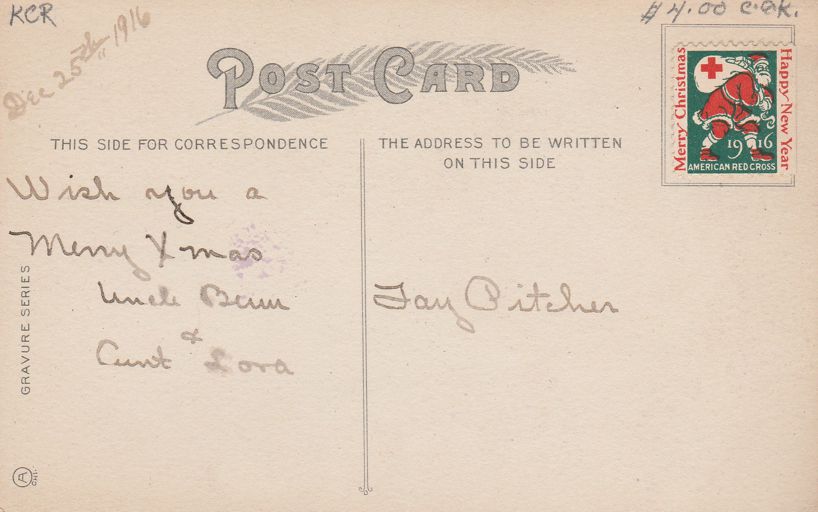 KCR
$4.00 C.O.K.
Dec 25th 1916
POST CARD
Merry Christmas
Happy New Year
1916
AMERICAN RED CROSS
THIS SIDE FOR CORRESPONDENCE
THE ADDRESS TO BE WRITTEN
ON THIS SIDE
Wish you a
Merry Xmas
Uncle
&
Aunt Lora
Fay Pitcher
GRAVURE SERIES
A
CHI.